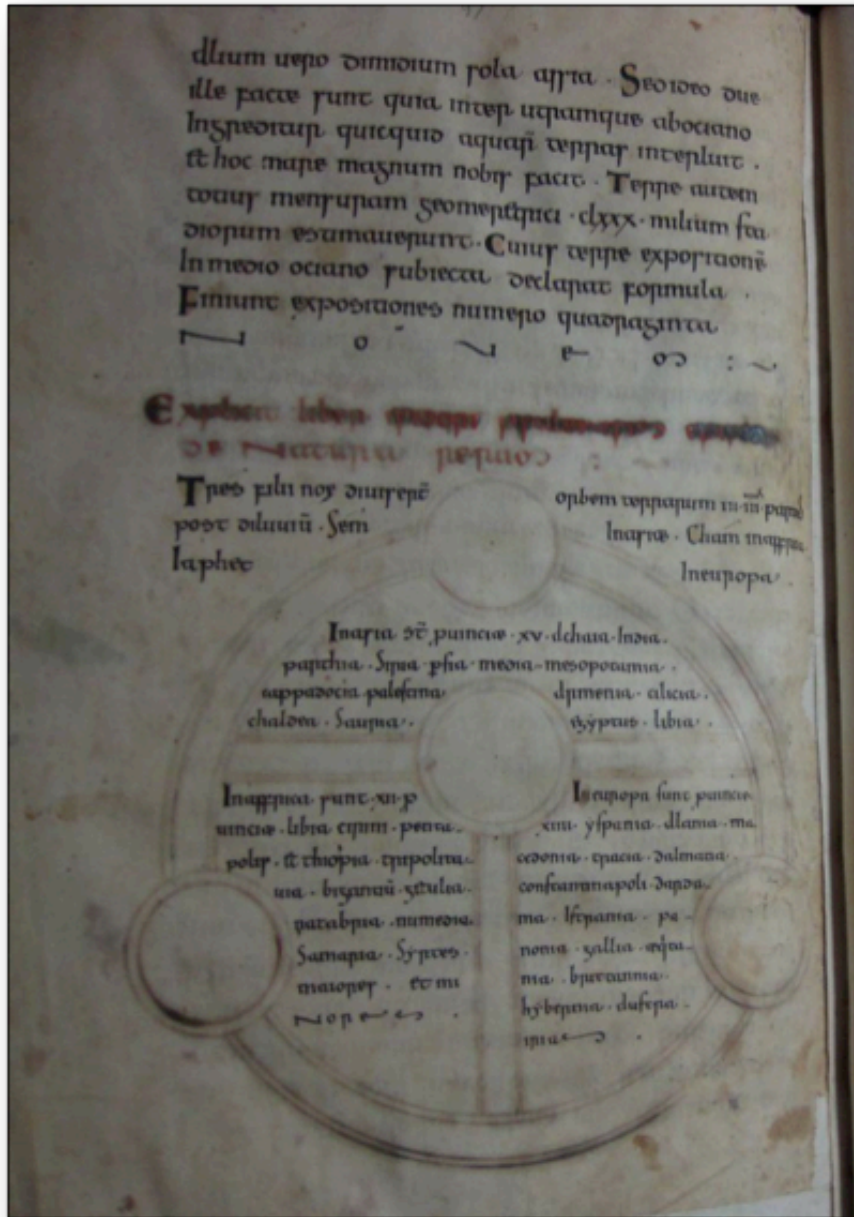 alium uero dimidium sola assia . Sed ideo due
ille facte sunt quia inter utramque ab ociano
Ingreditur quicquid aquarū terras interluit .
Et hoc mare magnum nobis facit . Terre autem
totius mensuram geometrici . clxxx . milium sta
diorum estimauerunt . Cuius terre expositionē
In medio ociano subiecta declarat formula .
Finiunt expositiones numero quadraginta
Explicit liber
de natura rerum
Tres filii noy diuiserē orbem terrarum in
post diluuiū . Sem In asia . Cham in affrica
Iaphet In europa .
In asia st̄ puincie . xv . India .
parthia . Siria psia media mesopotamia .
cappadocia palestina armenia cilicia .
chaldea . Sauria . egyptus . libia .
In affrica sunt . xii . p
uincie . libia cirim . penta .
polis . Ethiopia tripolita
nia . bizantiū getulia .
natabria . numedia .
Samaria . Syrtes .
maiores . et mi
nores .
In europa sunt puincie
xiiii yspania alania . ma
cedonia . tracia dalmatia .
constantinapoli darda .
nia . Istriania . pa
nonia gallia
nia . brittannia .
hybernia